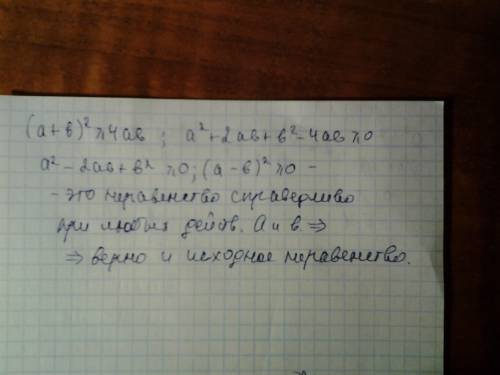 (а+в)² ⩾ 4ав ; а²+2ав+в²-4ав ⩾ 0
а²-2ав+в² ⩾ 0; (а-в)² ⩾ 0 -
- это неравенство справедливо
при любых действ. а и в ⇒
⇒ верно и исходное неравенство.